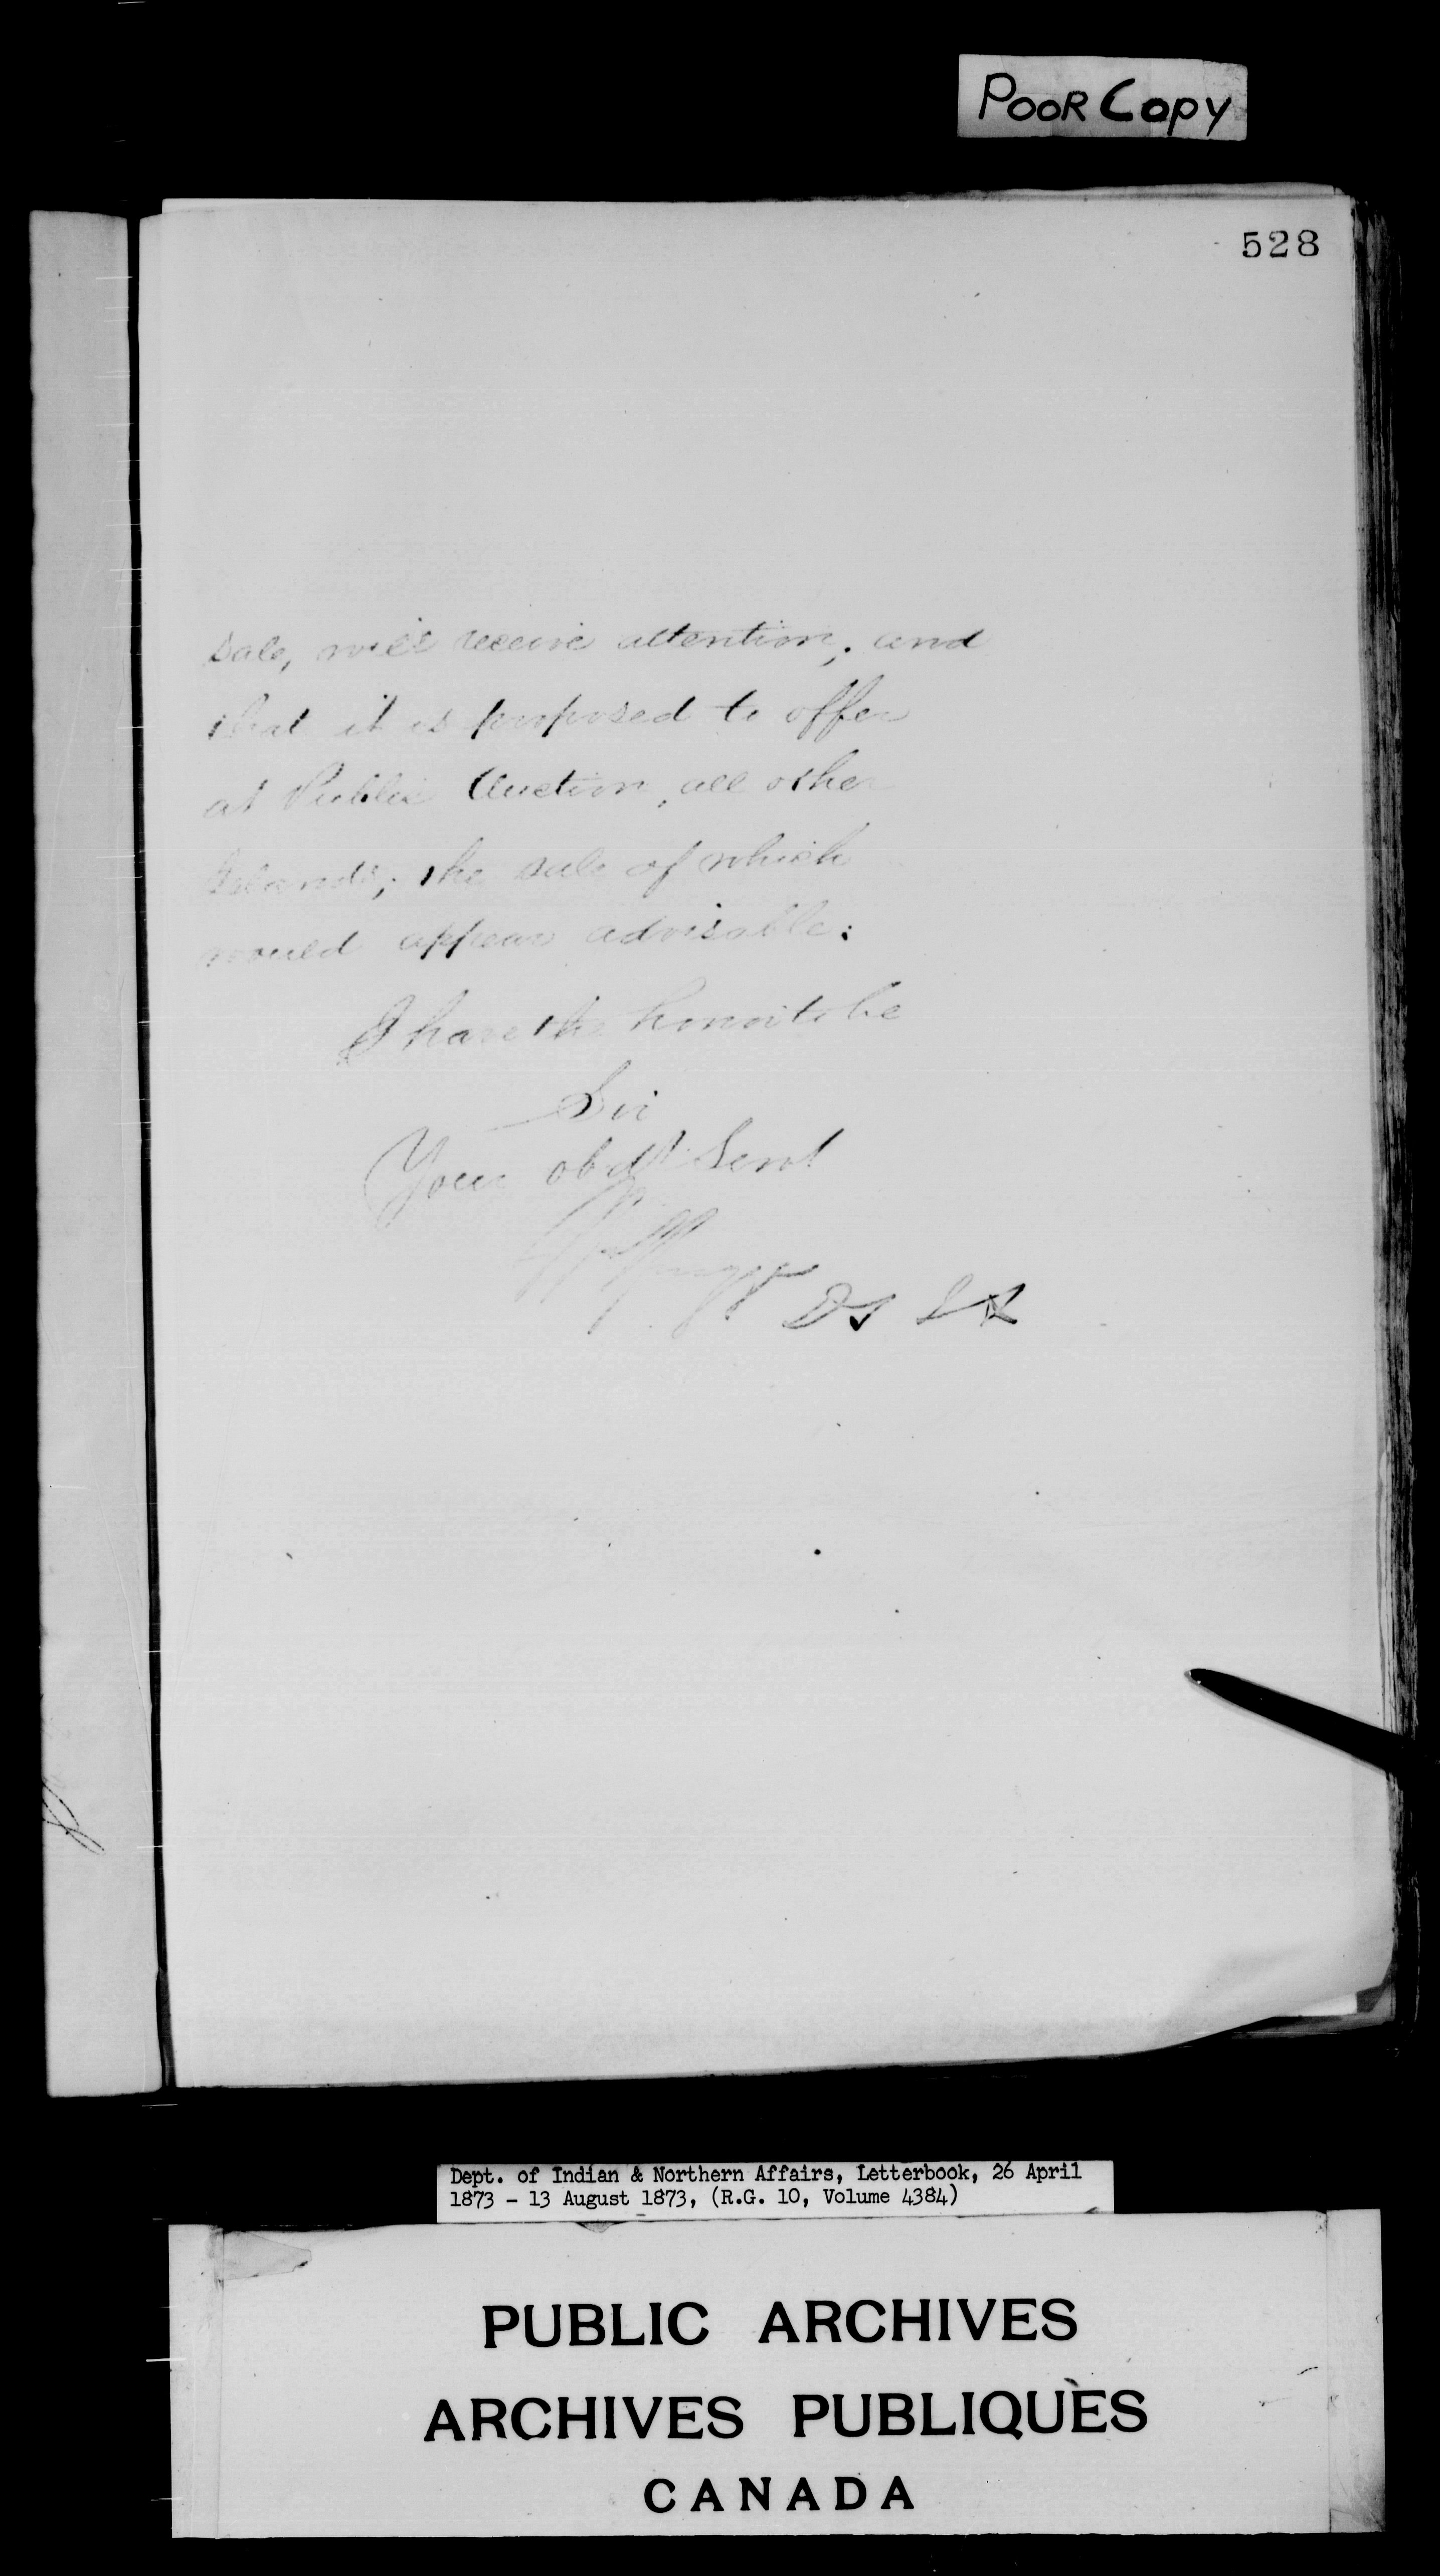 POOR Copy
528
sale, will receive attention; and
that it is proposed to offer
at Public Auction, all other
Islands; the sale of which
would appear advisable:
I have the honor to be
Sir
Your obdt Servt
Dept. of Indian & Northern Affairs, Letterbook, 26 April
1873 - 13 August 1873, (R.G. 10, Volume 4384)
PUBLIC ARCHIVES
ARCHIVES PUBLIQUES
CANADA